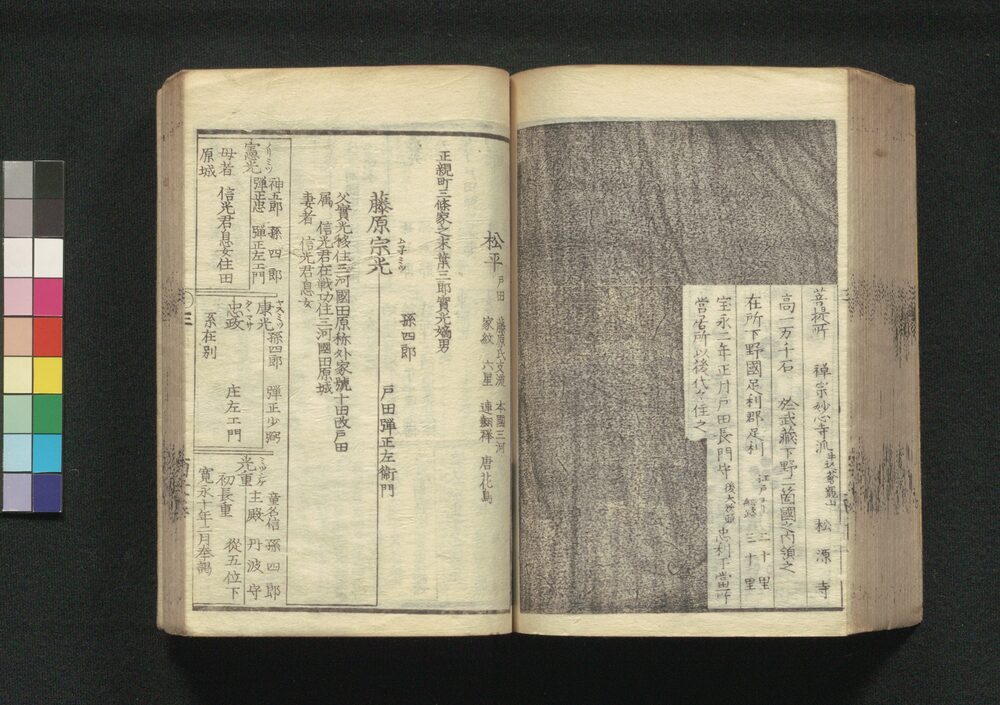 菩提所 禅宗妙心寺派 松源寺
高一万千石 於武藏下野二箇國之内領之
在所下野國足利郡足利 江戸ヨリ 二十里
三十里
宝永二年正月戸田長門守 忠利
當所以後代々住之
松平 戸田 藤原氏支流 本國三河
家紋 六星 連翻蝉 唐花鳥
正親町三條家之末葉三郎實光嫡男
藤原宗光 ムネミツ 孫四郎 戸田彈正左衛門
父實光移住三河國田原称外家號十田改戸田
属 信光君在戦功住三河國田原城
妻者 信光君息女
憲光 ノリミツ 神五郎 孫四郎
彈正忠 彈正左エ門
母者 信光君息女住田
原城
康光 ヤスミツ 孫四郎 彈正少弼
忠政 タヽマサ 庄左エ門
系在别
光重 ミツシゲ 童名信 孫四郎
主殿 丹波守
初長重 從五位下
寛永十年二月奉謁